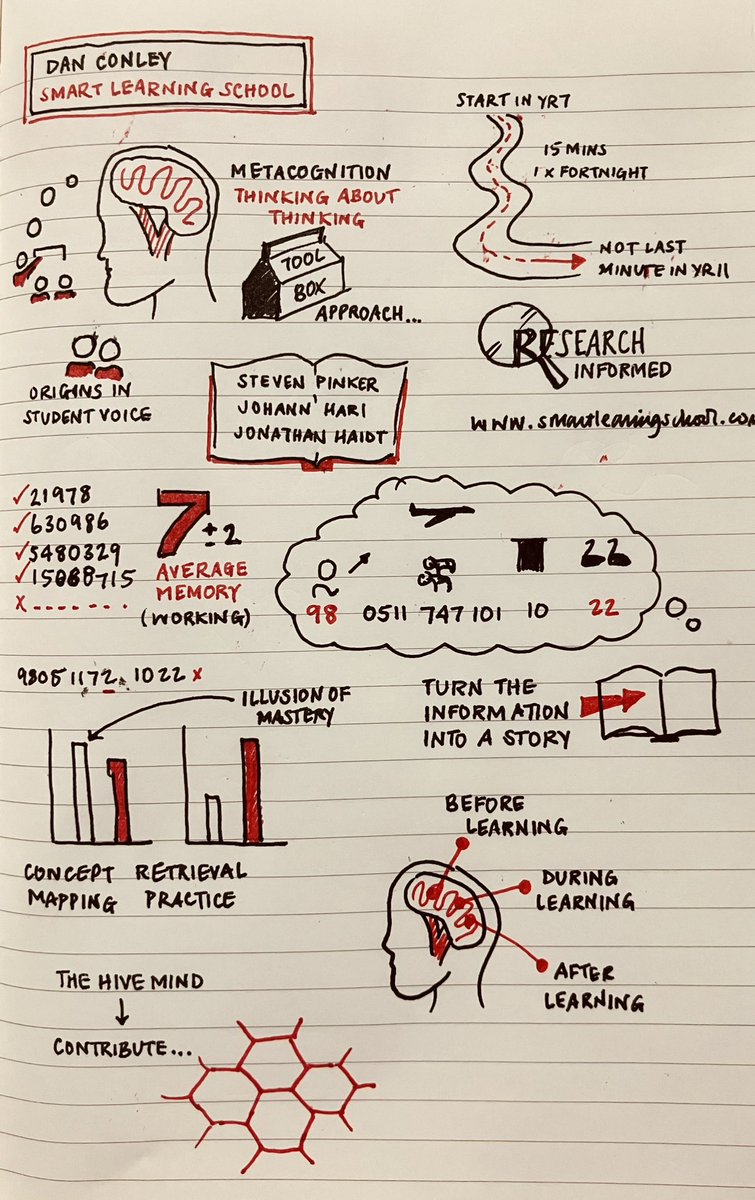 DAN CONLEY
SMART LEARNING SCHOOL
START IN YR7
15 MINS
1 X FORTNIGHT
NOT LAST
MINUTE IN YR11
METACOGNITION
THINKING ABOUT
THINKING
TOOL
BOX
APPROACH...
RESEARCH
INFORMED
ORIGINS IN
STUDENT VOICE
STEVEN PINKER
JOHANN HARI
JONATHAN HAIDT
✓21978
✓630986
✓5480329
X - - - - - - .
7 ± 2
AVERAGE
MEMORY
(WORKING)
98 0511 747 101 10 22
ILLUSION OF
MASTERY
TURN THE
INFORMATION
INTO A STORY
CONCEPT
MAPPING
RETRIEVAL
PRACTICE
BEFORE
LEARNING
DURING
LEARNING
AFTER
LEARNING
THE HIVE MIND
CONTRIBUTE...